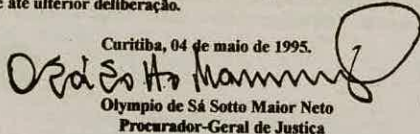 até ulterior deliberação.
Curitiba, 04 de maio de 1995.
Olympio de Sá Sotto Maior Neto
Procurador-Geral de Justiça